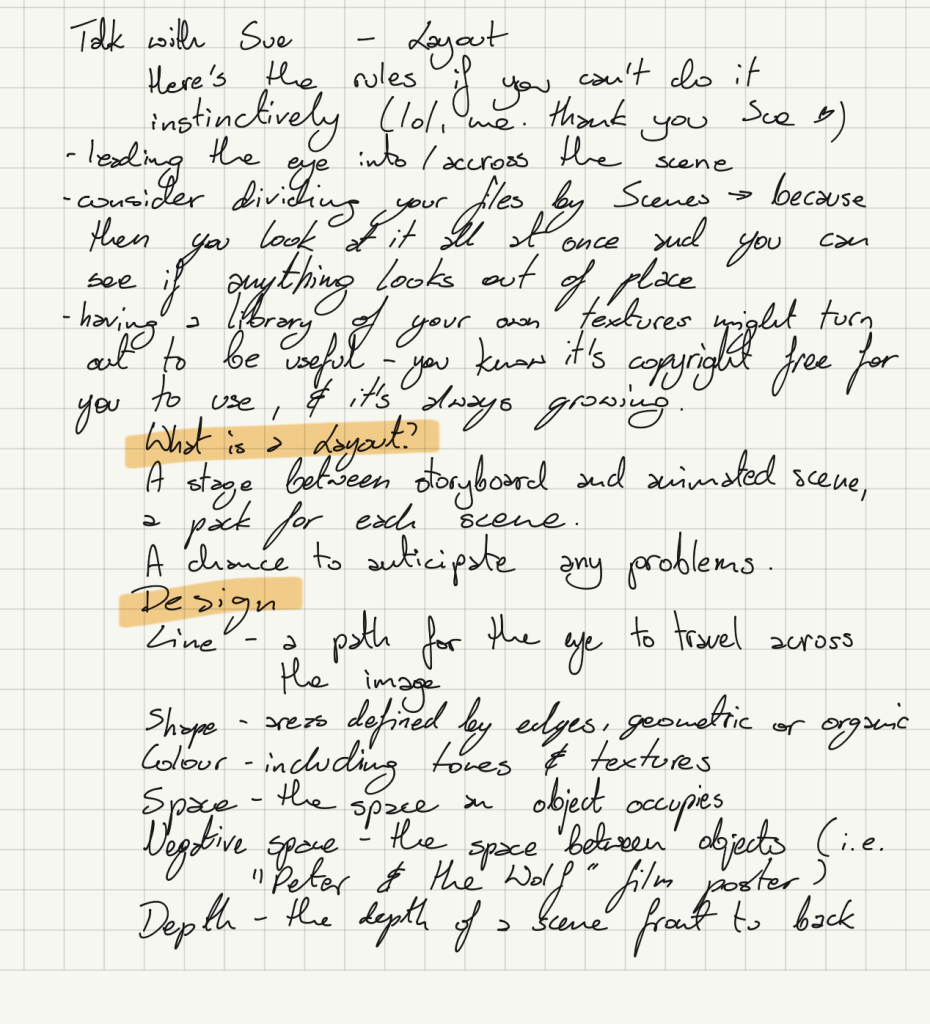 Talk with Sue - Layout
Here's the rules if you can't do it
instinctively (lol, me. thank you Sue )
- leading the eye into/accross the scene
- consider dividing your files by Scenes → because
then you look at it all at once and you can
see if anything looks out of place
- having a library of your own textures might turn
out to be useful - you know it's copyright free for
you to use, & it's always growing.
What is a Layout?
A stage between storyboard and animated scene,
a pack for each scene.
A chance to anticipate any problems.
Design
Line - a path for the eye to travel across
the image
Shape - areas defined by edges, geometric or organic
Colour - including tones & textures
Space - the space an object occupies
Negative space - the space between objects (i.e.
"Peter & the Wolf" film poster)
Depth - the depth of a scene front to back